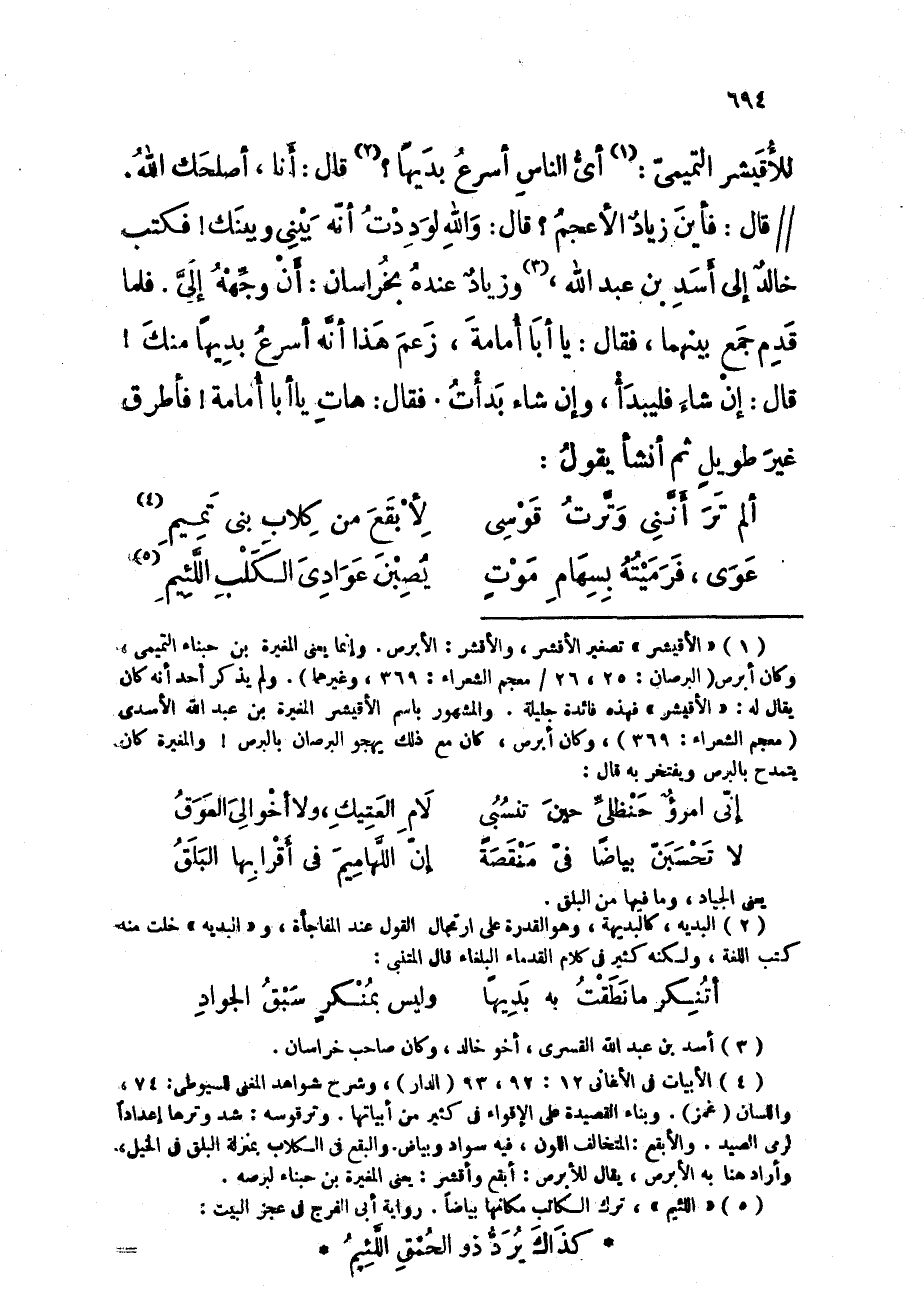 ٦٩٤
للأُقَيْشر التميمىّ :(١) أىُّ الناسِ أسرعُ بدَيهاً ؟(٢) قال : أَنا ، أصلحَك اللهُ .
// قال : فأينَ زيادٌ الأعجمُ ؟ قال : وَاللهِ لوَدِدْتُ أنّه بَيْنِي وبينَك ! فكتب
خالدٌ إلى أَسَدِ بن عبد الله ،(٣) وزيادٌ عندهُ بخُراسان : أَنْ وجِّهْهُ إلَىَّ . فلما
قَدِم جمَع بينهما ، فقال : يا أبَا أُمامةَ ، زَعمَ هَذا أنَّه أسرعُ بدِيهاً منكَ !
قال : إنْ شاءَ فليبدَأْ ، وإن شاء بَدأْتُ . فقال : هاتِ ياأبا أُمامة ! فأطرق
غيرَ طويلٍ ثم أنشأ يقولُ :
ألم تَرَ أَنَّنِي وَتَّرتُ قَوْسِى لِأَبْقَعَ من كِلَابِ بنى تَمِيمِ (٤)
عَوَى ، فَرَمَيْتُهُ بِسِهَامِ مَوْتٍ يُصِبْنَ عَوَادِىَ الكَلْبِ اللَّئِيمِ (٥)
( ١ ) « الأقيشر » تصغير الأقشر ، والأقشر : الأبرص . وإنما يعنى المغيرة بن حبناء التميمى ،
وكان أبرص ( البرصان : ٢٥ ، ٢٦ / معجم الشعراء : ٣٦٩ ، وغيرهما ) . ولم يذكر أحد أنه كان
يقال له : « الأقيشر » فهذه فائدة جليلة . والمشهور باسم الأقيشر المغيرة بن عبد الله الأسدى
( معجم الشعراء : ٣٦٩ ) ، وكان أبرص ، كان مع ذلك يهجو البرصان بالبرص ! والمغيرة كان
يتمدح بالبرص ويفتخر به قال :
إنّى امرؤٌ حَنْظلىٌّ حينَ تنسُبُنى لَامِ العَتِيكِ ، ولا أخْوالىَ العَوَقُ
لا تَحْسَبَنّ بياضًا فىّ مَنْقَصَةً إنّ اللَّهامِيمَ فى أَقْرابِها البَلَقُ
يعنى الجياد ، وما فيها من البلق .
( ٢ ) البديه ، كالبديهة ، وهوالقدرة على ارتجال القول عند المفاجأة ، و « البديه » خلت منه
كتب اللغة ، ولكنه كثير فى كلام القدماء البلغاء قال المتنبى :
أتُنكِر مانَطَقْتُ به بَدِيهًا وليس بمُنْكرٍ سَبْقُ الجوادِ
( ٣ ) أسد بن عبد الله القسرى ، أخو خالد ، وكان صاحب خراسان .
( ٤ ) الأبيات فى الأغانى ١٢ : ٩٢ ، ٩٣ ( الدار ) ، وشرح شواهد المغنى للسيوطى : ٧٤ ،
واللسان ( غمز ) . وبناء القصيدة على الإقواء فى كثير من أبياتها . وترقوسه : شد وترها إعداداً
لرمى الصيد . والأبقع : المتخالف اللون ، فيه سواد وبياض . والبقع فى الكلاب بمنزلة البلق فى الخيل ،
وأراد هنا به الأبرص ، يقال للأبرص : أبقع وأقشر : يعنى المغيرة بن حبناء لبرصه .
( ٥ ) « اللئيم » ، ترك الكاتب مكانها بياضاً . رواية أبى الفرج فى عجز البيت :
* كذَاكَ يُرَدُّ ذو الحُمْقِ اللَّئِيمُ *
=